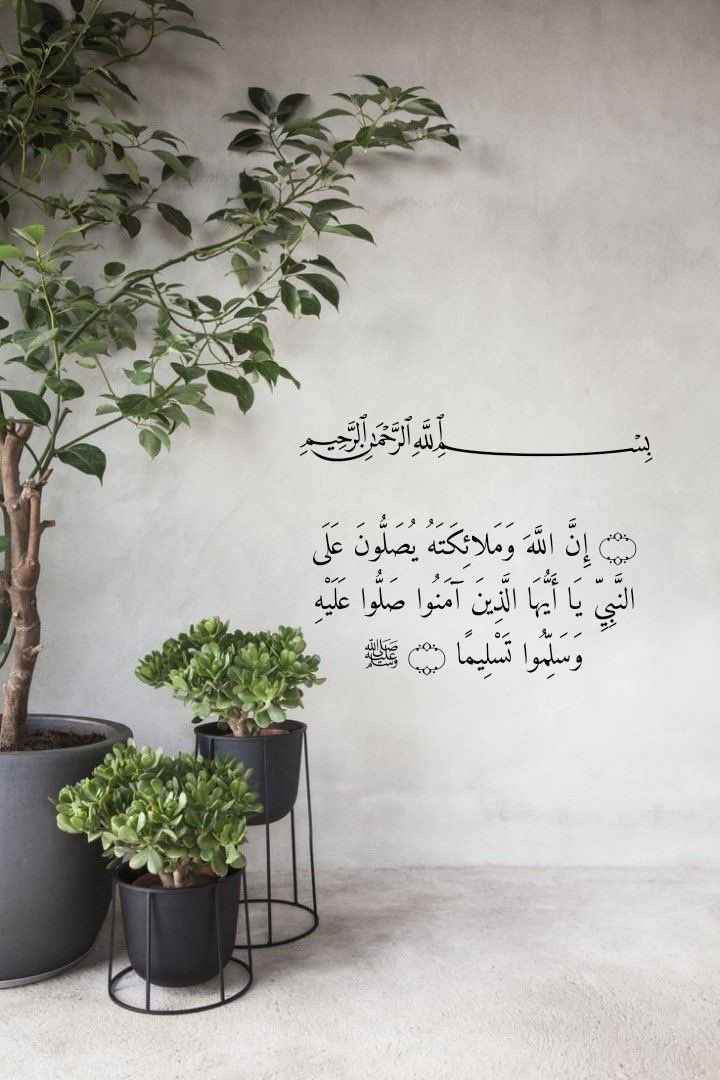 بِسْمِ ٱللَّهِ ٱلرَّحْمَٰنِ ٱلرَّحِيمِ
۝ إِنَّ اللَّهَ وَمَلائِكَتَهُ يُصَلُّونَ عَلَى
النَّبِيِّ يَا أَيُّهَا الَّذِينَ آمَنُوا صَلُّوا عَلَيْهِ
وَسَلِّمُوا تَسْلِيمًا ۝ ﷺ